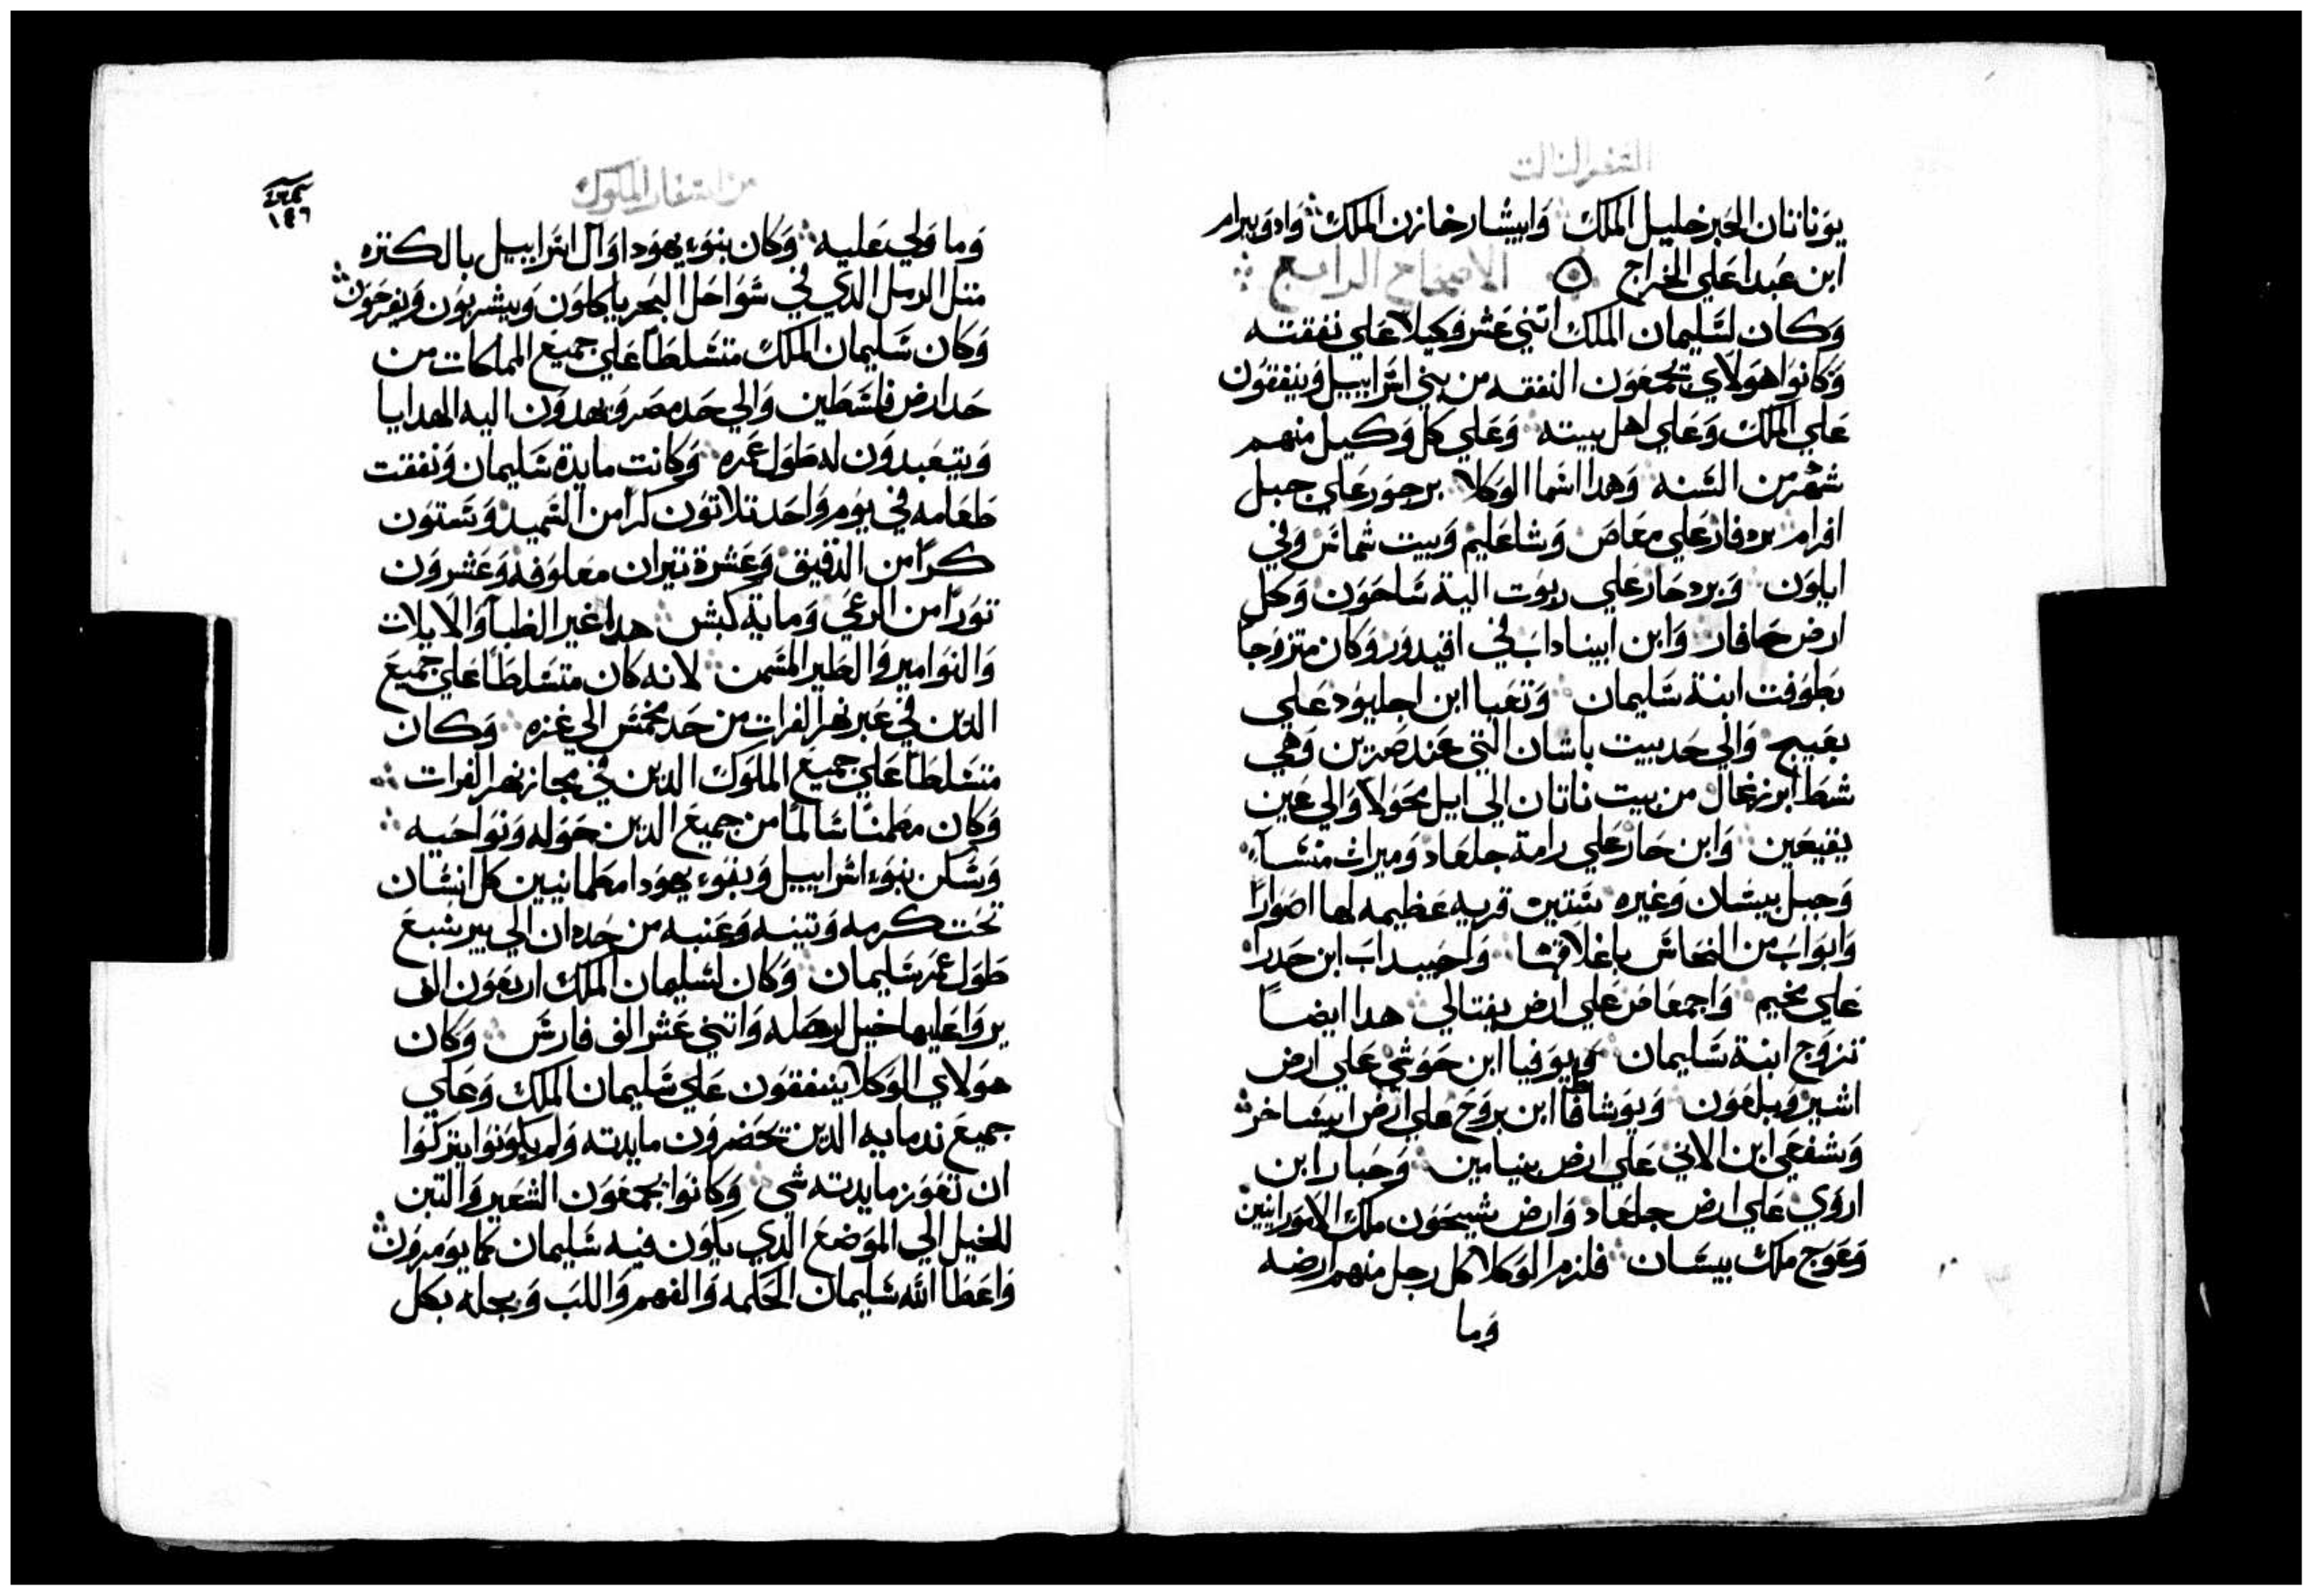 السفر الثالث
يوناثان الحبر خليل الملك وابيشار خازن الملك وادوبيرام
ابن عبدا علي الخراج الاصحاح الرابع
وكان لسليمان الملك اتني عشر وكيلا علي نفقته
وكانوا هولاي يجمعون النفقه من بني اسراييل وينفقون
علي الملك وعلي اهل بيته وعلي كل وكيل منهم
شهر من السنه وهدا اسما الوكلا برحور علي جبل
افرام بردفار علي معاص وشاعليم وبيت شماس وفي
ايلون وبردحار علي ربوت الية ساحون وكل
ارض حافار وابن ابيناداب في افيدور وكان متزوجا
بطوفت ابنة سليمان وتعبا ابن اجليود علي
والي حد بيت باشان التي عند صرتين وهي
شط ابرزغال من بيت ناتان الي ابل محولا والي عين
يقيعين وابن حار علي رامة جلعاد وميرات منسا
وجبل بيسان وغيره ستين قريه عظيمه لها اصوارا
وابواب من النحاس باغلاقها واحيبداب ابن حدرا
علي مخيم واجمعاص علي ارض يفتالي هدا ايضا
تزوج ابنة سليمان ويوفيا ابن حوشي علي ارض
اشير وبلعون ويوشافاا ابن بروح علي ارض ايساخر
وشفعي ابن الاني علي ارض بنيامين وحبارا ابن
اروي علي ارض جلعاد وارض شيحون ملك الامورانيين
وعوج ملك بيسان فلزم الوكلا كل رجل منهم ارضه
وما
من اسفار الملوك
١٤٦
وما ولي عليه وكان بنوء يهودا وال اسراييل بالكتره
متل الرمل الدي في سواحل البحر ياكلون ويشربون ويفرحون
وكان سليمان الملك متسلطا علي جميع المملكات من
حد ارض فلسطين والي حد مصر ويهدون اليه الهدايا
ويتعبدون له طول عمره وكانت مايدة سليمان ونفقت
طعامه في يوم واحد تلاتون كرا من السميد وستون
كرا من الدقيق وعشرة تيران معلوفه وعشرون
تورا من الرعي وماية كبش هدا غير الظبا والايلات
والنوامير والطير المسمن لانه كان متسلطا علي جميع
الدين في عبر نهر الفرات من حد مخمس الي غزه وكان
متسلطا علي جميع الملوك الدين في مجاز نهر الفرات
وكان مطمنا سالما من جميع الدين حوله ونواحيه
وسكن بنوء اسراييل وبنوء يهودا مطمانيين كل انسان
تحت كرمه وتينه وعنبه من حد دان الي بير شبع
طول عمر سليمان وكان لسليمان الملك اربعون الف
يروا عليها خيل لرحله واتني عشر الف فارس وكان
هولاي الوكلا ينفقون علي سليمان الملك وعلي
جميع ندمايه الدين يحضرون مايدته ولم يكونوا يتركوا
ان تعوز مايدته شي وكانوا يجمعون الشعير والتبن
للخيل الي الموضع الدي يكون فيه سليمان كما يومرون
واعطا الله سليمان الحكمه والفهم واللب وبجله بكل